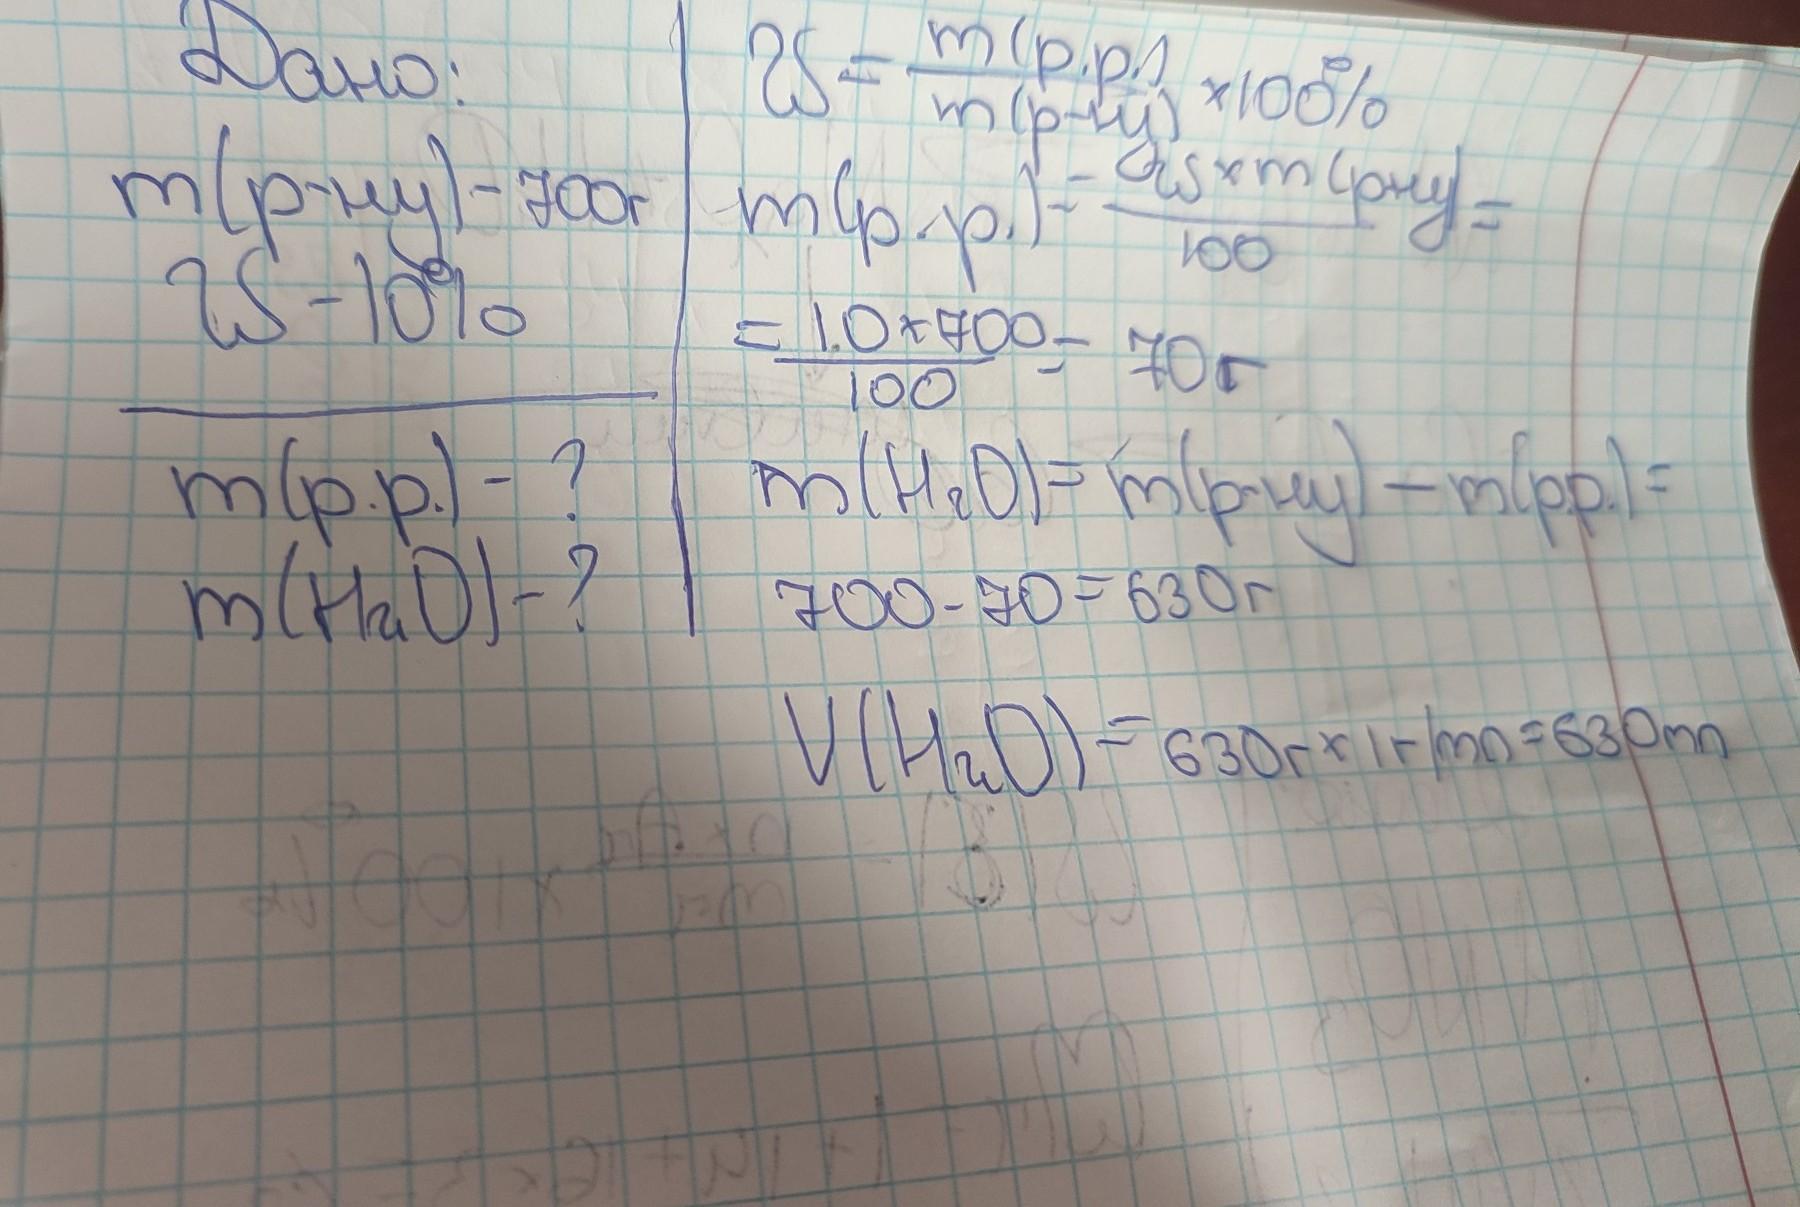 Дано:
m(р-ну) - 700г
W - 10%
m(р.р.) - ?
m(H₂O) - ?
W = m(р.р.) / m(р-ну) × 100%
m(р.р.) = W × m(р-ну) / 100 =
= 10 × 700 / 100 = 70г
m(H₂O) = m(р-ну) - m(р.р.) =
700 - 70 = 630г
V(H₂O) = 630г × 1г/мл = 630мл